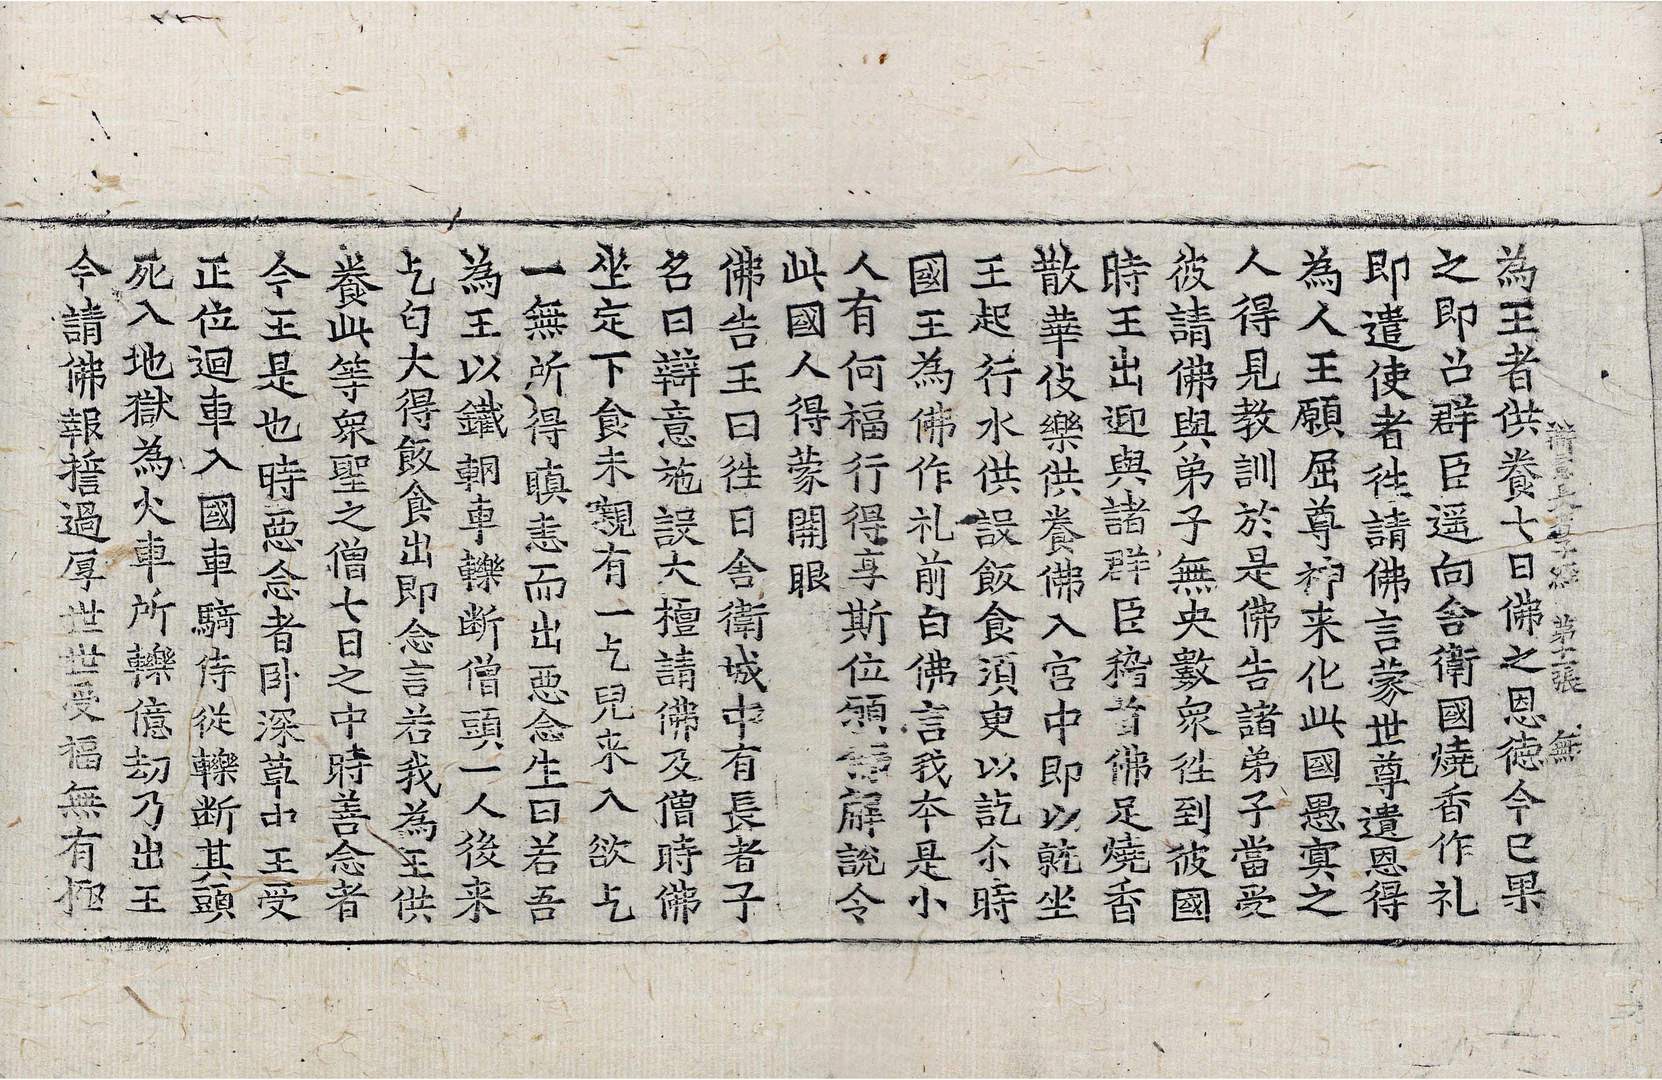 為王者供養七日佛之恩徳今已果
之即召群臣遥向舎衛國燒香作礼
即遣使者徃請佛言蒙世尊遺恩得
為人王願屈尊神来化此國愚冥之
人得見教訓於是佛告諸弟子當受
彼請佛與弟子無央數衆徃到彼國
時王出迎與諸群臣稽首佛足燒香
散華伎樂供養佛入宫中即以就坐
王起行水供設飯食須臾以訖尒時
國王為佛作礼前白佛言我本是小
人有何福行得享斯位願 解說令
此國人得蒙開眼
佛告王曰徃日舎衛城中有長者子
名曰辯意施設大檀請佛及僧時佛
坐定下食未親有一乞兒来入欲乞
一無所得瞋恚而出惡念生曰若吾
為王以鐵輞車轢断僧頭一人後来
乞匄大得飯食出即念言若我為王供
養此等衆聖之僧七日之中時善念者
今王是也時惡念者卧深草中王受
正位迴車入國車騎侍從轢断其頭
死入地獄為火車所轢億劫乃出王
今請佛報誓過厚世世受福無有極
意長者子經 第十二張 無